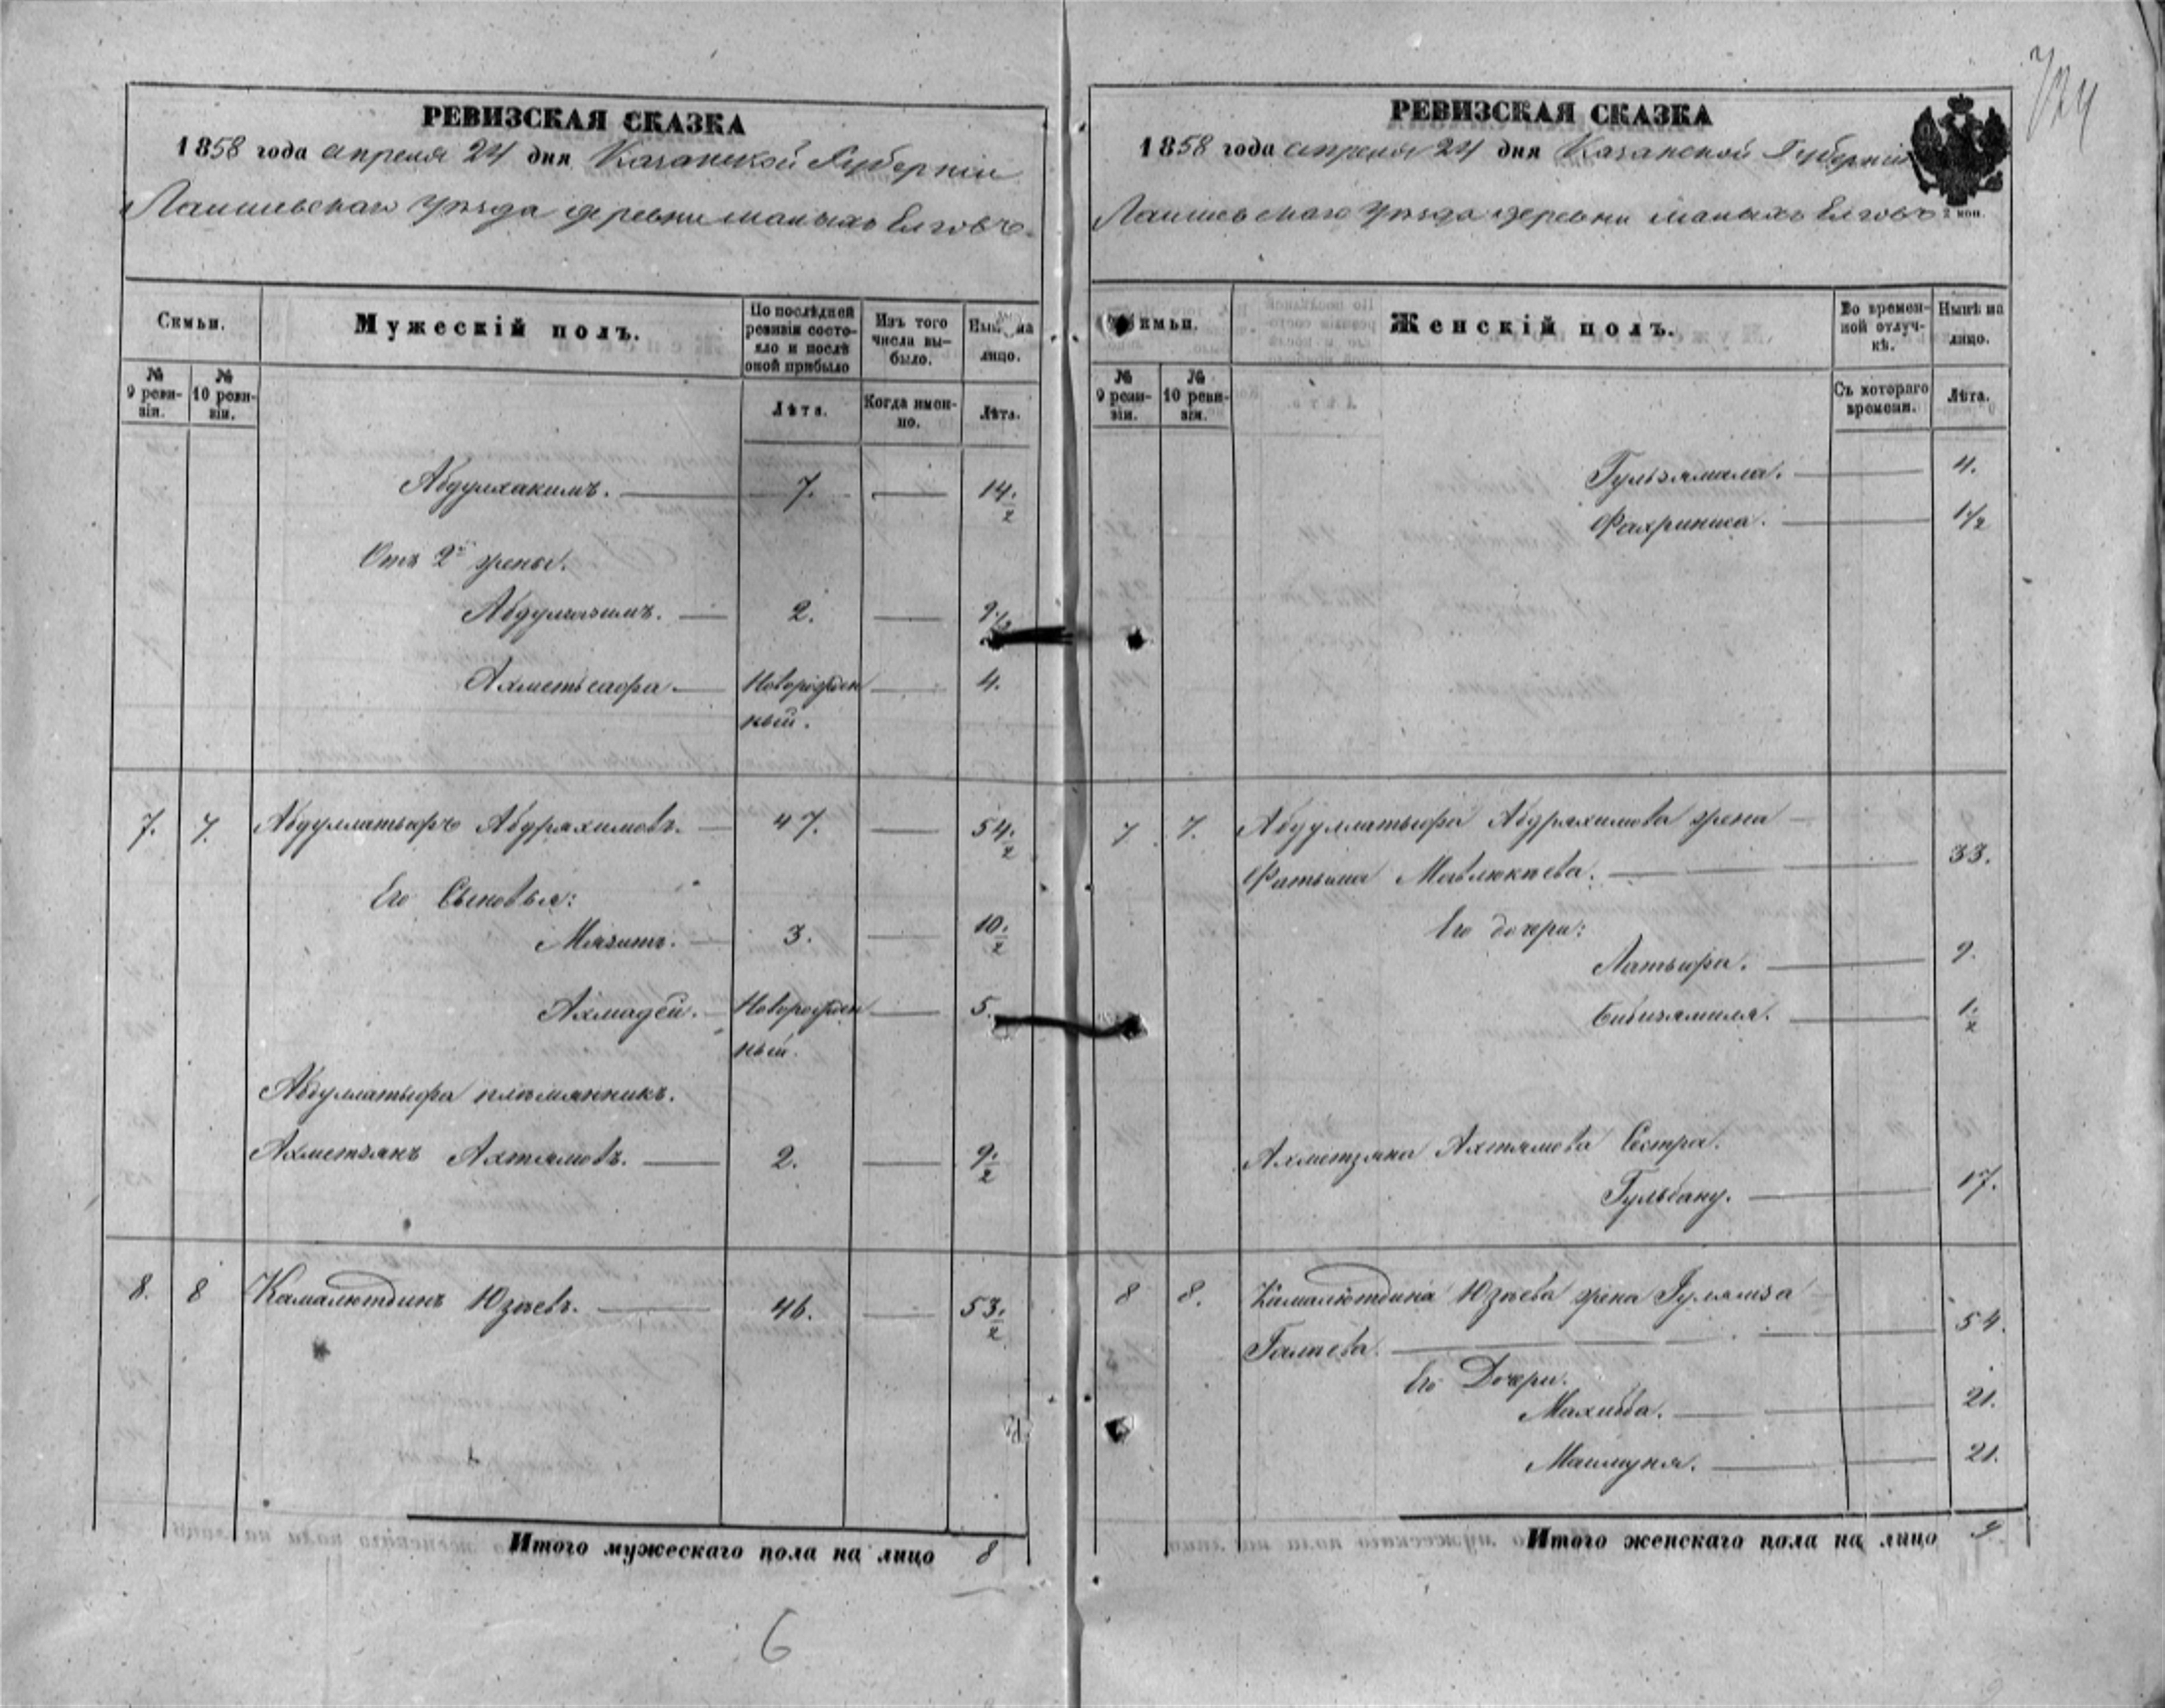 724
РЕВИЗСКАЯ СКАЗКА
1858 года апреля 24 дня Казанской Губерніи
Лаишевскаго Уѣзда деревни малыхъ Елговъ.
Семьи.
Мужескій полъ.
По послѣдней ревизіи состояло и послѣ оной прибыло
Изъ того числа выбыло.
Нынѣ на лицо.
№ 9 ревизіи.
№ 10 ревизіи.
Лѣта.
Когда именно.
Лѣта.
Абдулхакимъ. 7. 14 1/2
Отъ 2й жены.
Абдулгазимъ. 2. 9 1/2
Ахметьсафа. Новорожден 4.
ный.
7. 7. Абдуллатыфъ Абдряхимовъ. 47. 54 1/2
Его Сыновья:
Мязитъ. 3. 10 1/2
Ахмадей. Новорожден 5.
ный.
Абдуллатыфа племянникъ.
Ахметзянъ Ахтямовъ. 2. 9 1/2
8. 8 Камалютдинъ Юзѣевъ. 46. 53 1/2
Итого мужескаго пола на лицо 8
6
РЕВИЗСКАЯ СКАЗКА
1858 года апреля 24 дня Казанской Губерніи
2 коп.
Лаишевскаго Уѣзда деревни малыхъ Елговъ
Семьи.
Женскій полъ.
Во временной отлучкѣ.
Нынѣ на лицо.
№ 9 ревизіи.
№ 10 ревизіи.
Съ котораго времени.
Лѣта.
Гульзямала. 4.
Фахриниса. 1/2
7 7. Абдуллатыфа Абдряхимова жена
Фатыма Мавлюкѣева. 33.
Его дочери:
Латыфа. 9.
Бибизямиля. 1/2
Ахметзяна Ахтямова Сестра.
Гульбану. 17.
8 8. Камалютдина Юзѣева жена Гуляиза
Галѣева. 54.
Его Дочери.
Махиба. 21.
Маимуня. 21.
Итого женскаго пола на лицо 9